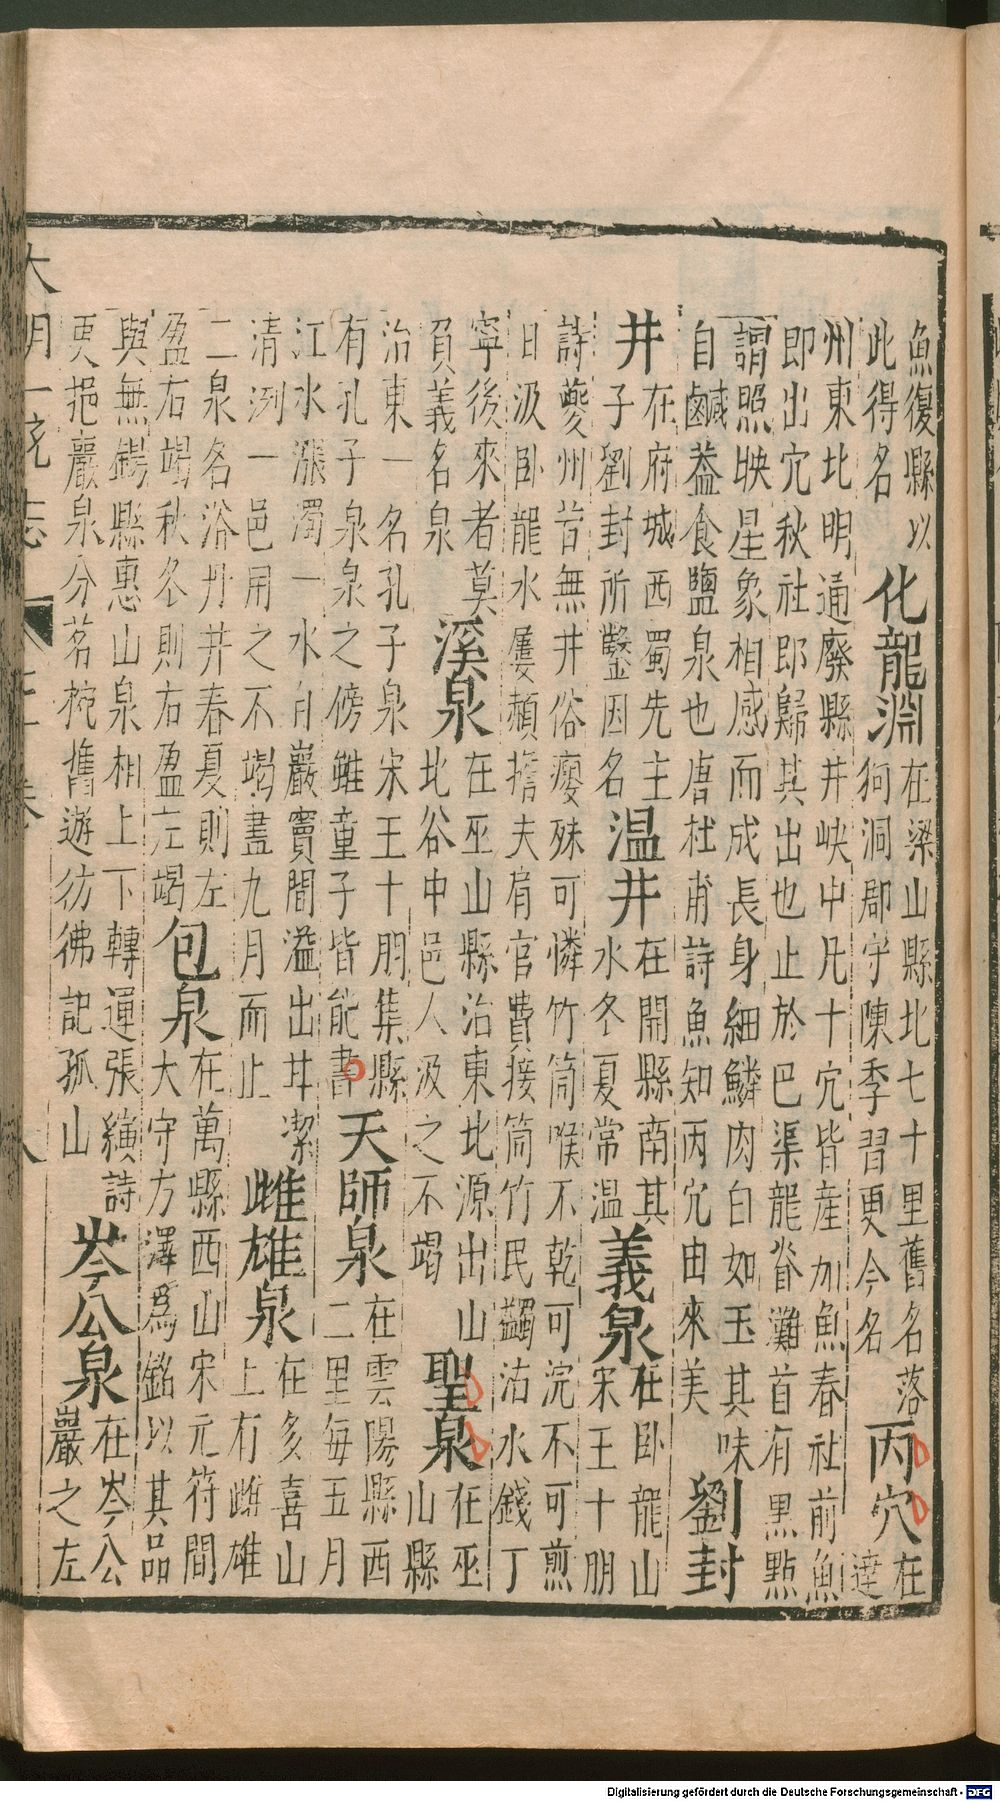 魚復縣以
此得名
化龍淵
在梁山縣北七十里舊名落
狗洞郡守陳季習更今名
丙穴
在
達
州東北明通廢縣井峽中凡十穴皆産加魚春社前魚
即出穴秋社即歸其出也止於巴渠龍脊灘首有黑點
謂照映星象相感而成長身細鱗肉白如玉其味
自鹹葢食鹽泉也唐杜甫詩魚知丙穴由來美
劉封
井
在府城西蜀先主
子劉封所鑿因名
温井
在開縣南其
水冬夏常温
義泉
在卧龍山
宋王十朋
詩夔州昔無井俗癭殊可憐竹筒喉不乾可浣不可煎
日汲卧龍水屢頳擔夫肩官費接筒竹民蠲沽水錢丁
寧後來者莫
負義名泉
溪泉
在巫山縣治東北源出山
北谷中邑人汲之不竭
聖泉
在巫
山縣
治東一名孔子泉宋王十朋集縣
有孔子泉泉之傍雖童子皆能書
天師泉
在雲陽縣西
二里每五月
江水漲濁一水自巖竇間溢出甘潔
清冽一邑用之不竭盡九月而止
雌雄泉
在多喜山
上有雌雄
二泉名浴丹井春夏則左
盈右竭秋冬則右盈左竭
包泉
在萬縣西山宋元符間
大守方澤爲銘以其品
與無錫縣惠山泉相上下轉運張縯詩
更挹巖泉分茗椀舊遊彷彿記孤山
岑公泉
在岑公
巖之左
大明一統志
Digitalisierung gefördert durch die Deutsche Forschungsgemeinschaft - DFG